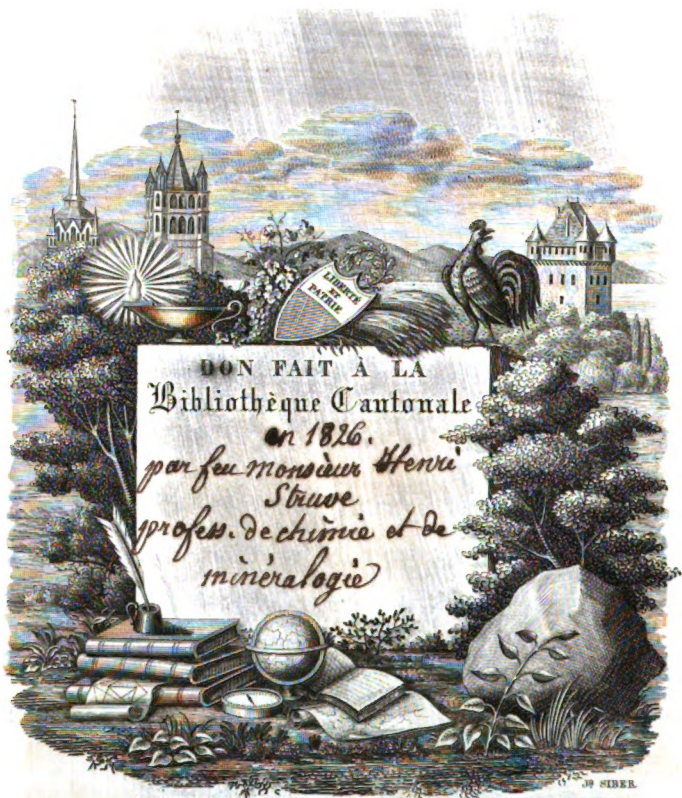 LIBERTÉ
ET
PATRIE
DON FAIT À LA
Bibliothèque Cantonale
en 1826.
par feu monsieur Henri
Struve
profess. de chimie et de
minéralogie
JB SIBER